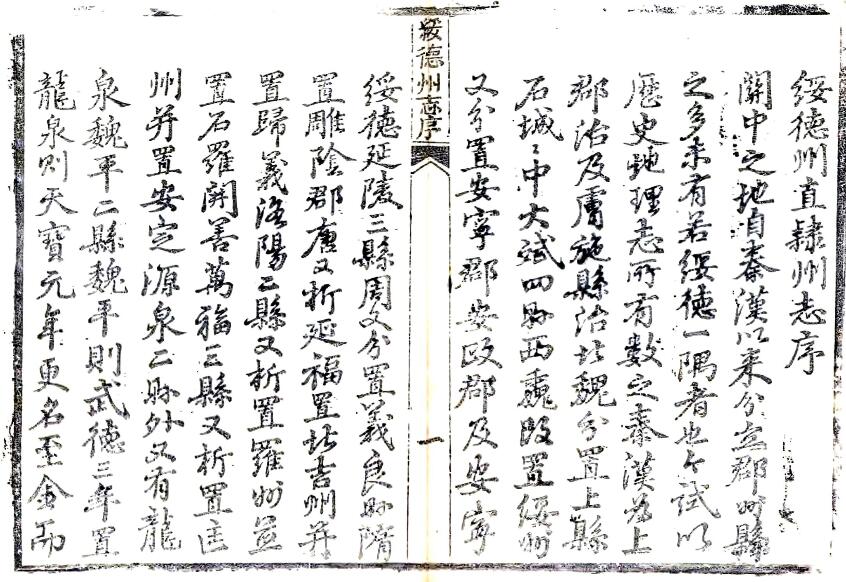 綏德州直隸州志序
關中之地自秦漢以来分立郡州縣
之多未有若綏德一隅者也今試以
歷史地理志所有數之秦漢為上
郡治及膚施縣治北魏分置上縣
石城〻中大斌四縣西魏改置綏州
又分置安寧郡安政郡及安寧
綏德州志序
一
綏德延陵三縣周又分置義良縣隋
置雕陰郡唐又析延福置北吉州并
置歸義洛陽二縣又析置羅州並
置石羅開善萬福三縣又析置匡
州并置安定源泉二縣外又有龍
泉魏平二縣魏平則武德三年置
龍泉則天寶元年更名至金而